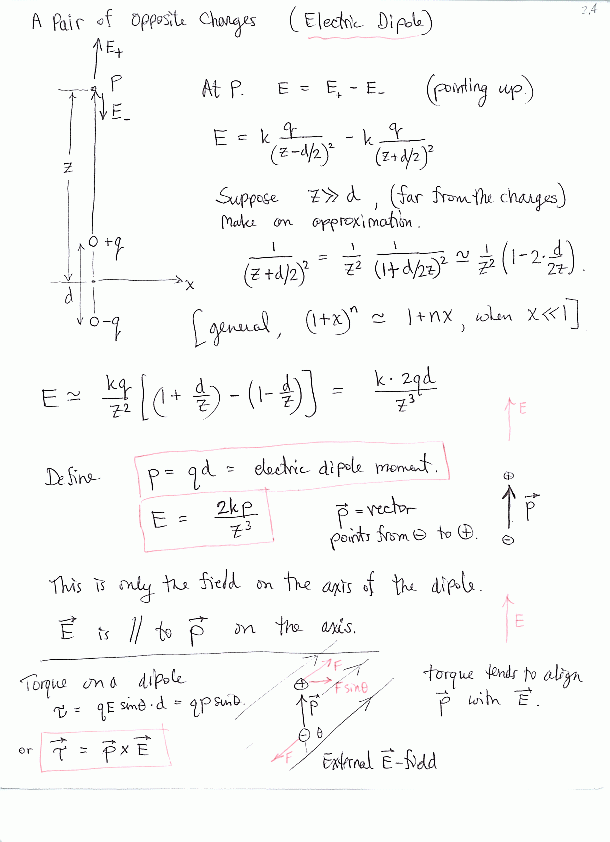 2.4
A Pair of Opposite Charges (Electric Dipole)
E+
P
E-
z
+q
x
d
-q
At P. E = E+ - E- (pointing up.)
E = k q/(z-d/2)² - k q/(z+d/2)²
Suppose z ≫ d, (far from the charges)
Make an approximation.
1/(z+d/2)² = 1/z² 1/(1+d/2z)² ≃ 1/z² (1-2·d/2z).
[general, (1+x)ⁿ ≃ 1+nx, when x≪1]
E ≃ kq/z² [(1+d/z) - (1-d/z)] = k·2qd/z³
E
Define. p = qd = electric dipole moment.
E = 2kp/z³
p⃗ = vector
points from ⊖ to ⊕.
⊕
p⃗
⊖
This is only the field on the axis of the dipole.
E⃗ is // to p⃗ on the axis.
E
Torque on a dipole
τ = qE sinθ·d = qp sinθ.
or τ⃗ = p⃗ × E⃗
F
⊕
F sinθ
p⃗
⊖ θ
F
External E⃗-field
torque tends to align
p⃗ with E⃗.